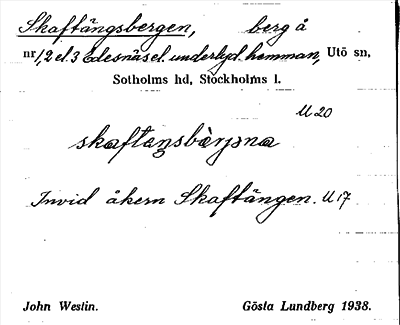 Skaftängsbergen, berg å
nr 1, 2 el. 3 Edesnäs el. underlyd. hemman, Utö sn,
Sotholms hd, Stockholms l.
U 20
skaftaŋsbæ̀rjəna
Invid åkern Skaftängen. U 17
John Westin. Gösta Lundberg 1938.